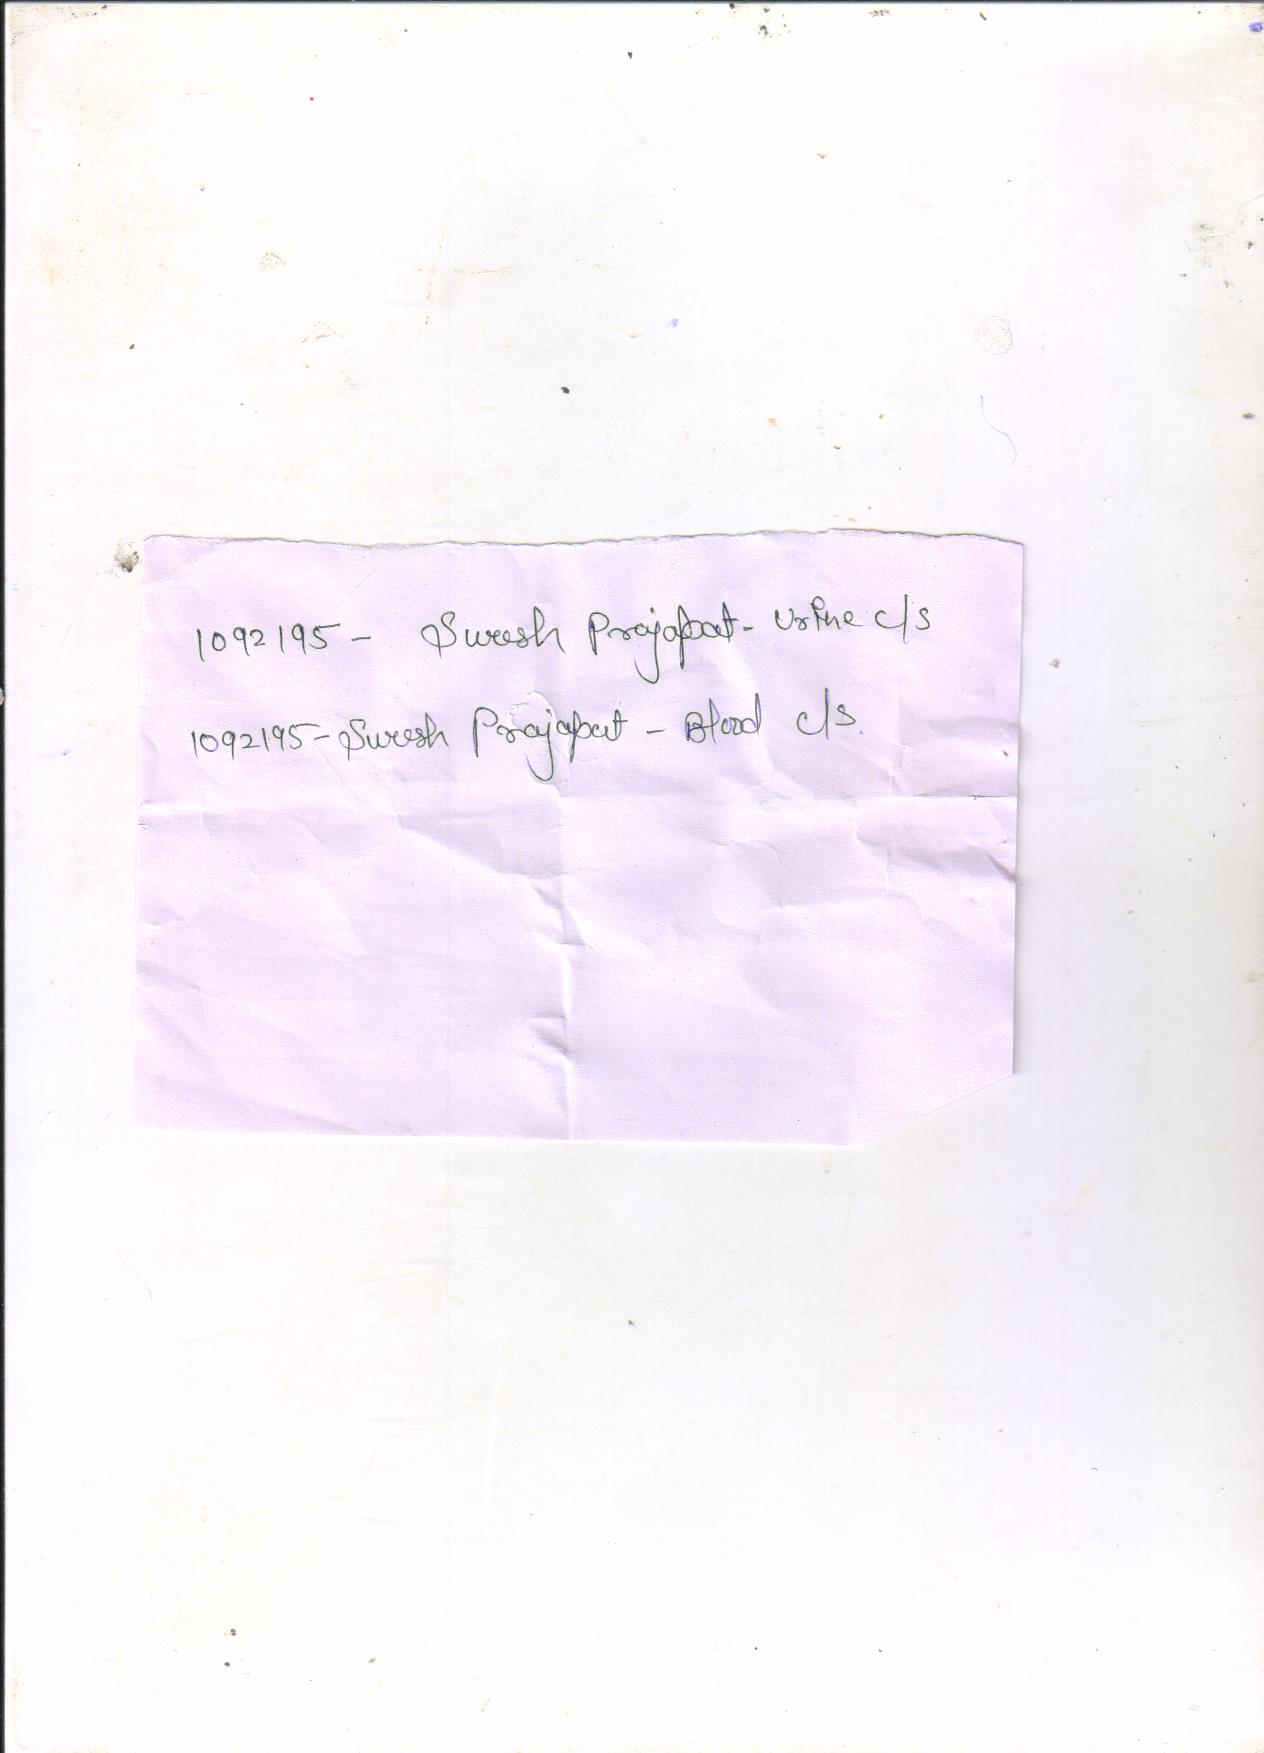 1092195 - Suresh Prajapat - Urine c/s
1092195 - Suresh Prajapat - Blood c/s